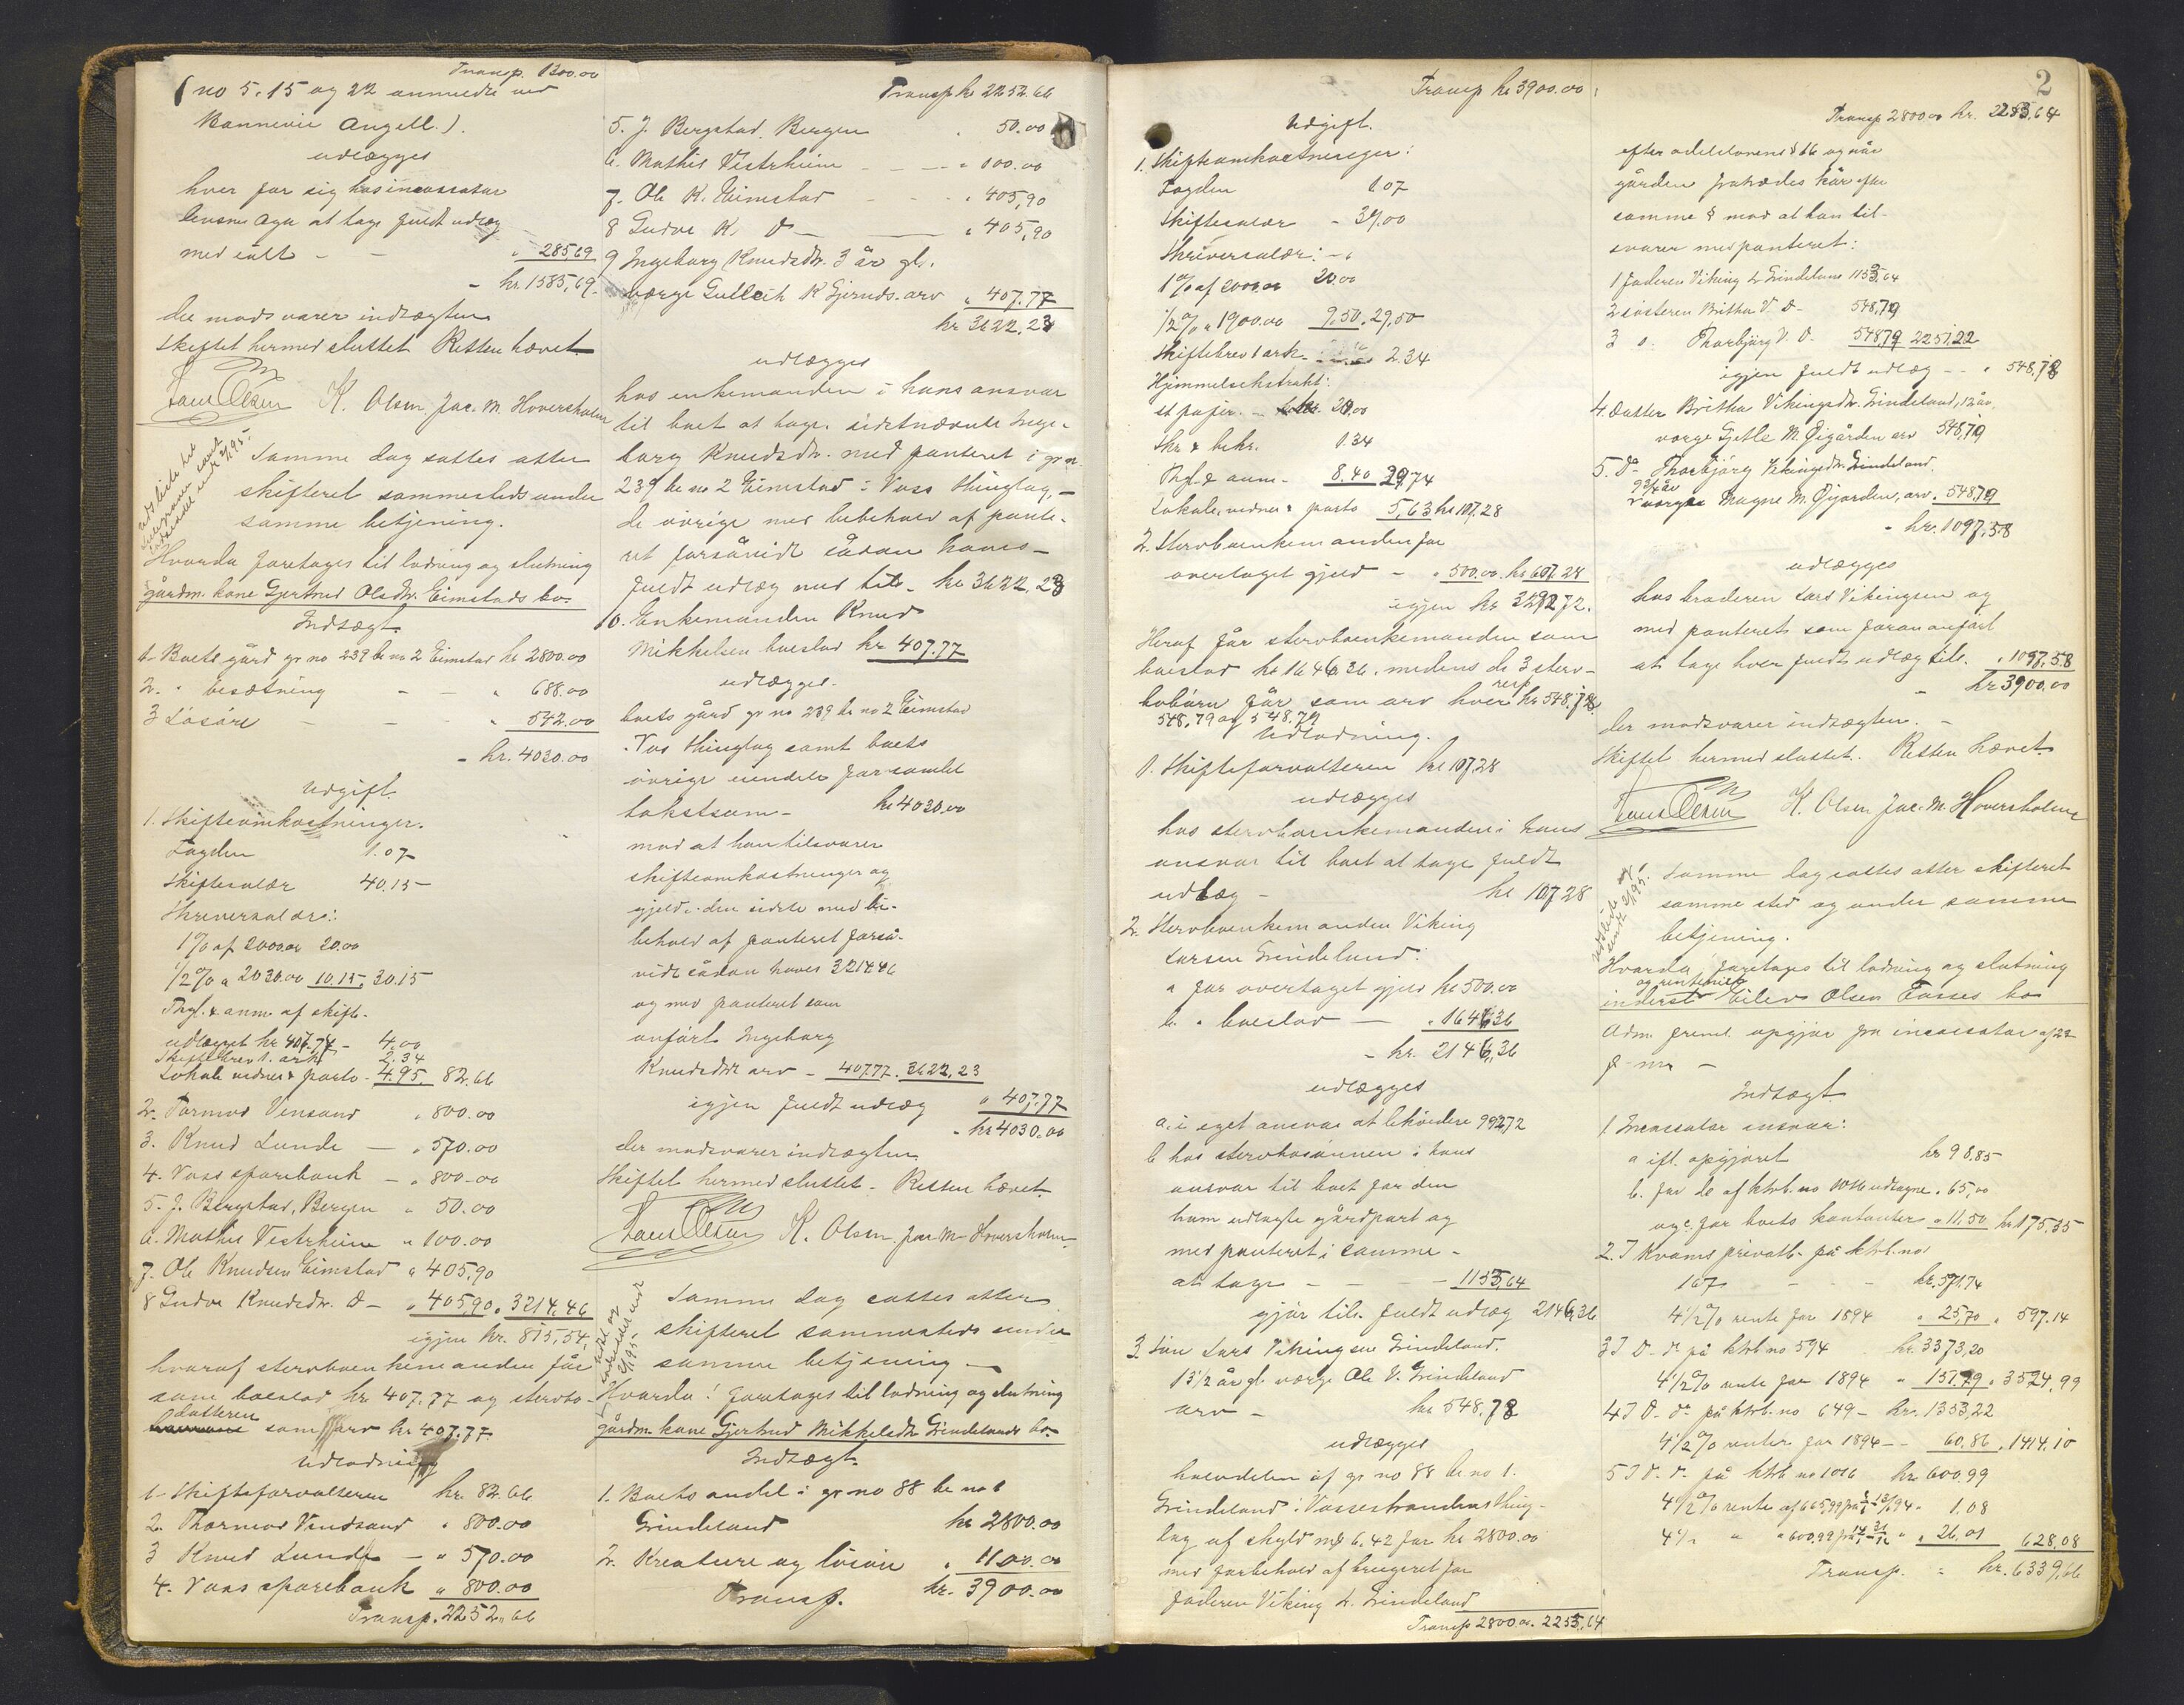 Transp. 1300.00
(no 5, 15 og 22 anmeldte ved
Bonnevie Angell.).
udlægges
hver for sig hos incassator
lensm. Aga at tage fuldt udlæg
med ialt - - " 285,69
- kr. 1585,69.
der modsvarer indtægten
Skiftet hermed sluttet Retten hævet
K. Olsen. Jac. M. Hoversholm
Samme dag sattes atter
skifteret sammesteds under
samme betjening.
Hvorda foretages til lodning og slutning
gårdm. kone Gjertrud Olsdtr. Eimstads bo.
Indtægt.
1. Boets gård gr no 239 br no 2 Eimstad kr 2800.00
2. " besætning - - " 688.00
3 Løsøre - - " 542.00
- kr. 4030.00
Udgift.
1. Skifteomkostninger.
Fogden 1.07
Skiftesalær 40.15
Skriversalær:
1% af 2000.00 20.00
1/2% " 2030.00 10.15. 30.15
Thgl. & anm af skifte-
udlægget kr 407.77 - 4.00
Skiftebrev 1. ark 2.34
Lokale vidner & porto - 4.95 82.66
2. Tormod Vinsand " 800.00
3. Knud Lunde - " 570.00
4. Voss sparebank - " 800.00
5. J. Bergstad, Bergen " 50.00
6. Mathis Vestrheim " 100.00
7. Ole Knudsen Eimstad " 405,90
8 Gudve Knudsdtr. do - " 405,90 " 3214.46
igjen kr. 815,54,
hvoraf stervboenkemanden får
som boeslod kr 407.77 og stervbo-
datteren som arv kr 407.77.
Udlodning
1. Skifteforvalteren kr. 82.66
2. Thormod Vindsand " 800.00
3 Knud Lunde - " 570.00
4. Voss sparebank " 800.00
Transp. 2252,66
Transp kr 2252.66
5. J. Bergstad. Bergen " 50.00
6. Mathis Vestrheim - - " 100.00
7. Ole K. Eimstad - - " 405,90
8 Gudve K. do - - " 405,90
9 Ingeborg Knudsdtr. 3 år gl.
værge Gulleik K Gjernds. arv " 407.77
kr 3622,23
udlægges
hos enkemanden i hans ansvar
til boet at tage. sidstnævnte Inge-
borg Knudsdtr. med panteret i gr n
239 br no 2 Eimstad i Voss thinglag, -
de øvrige med bibehold af pante-
ret forsåvidt sådan haves -
fuldt udlæg med tils. kr 3622,23
10. Enkemanden Knud
Mikkelsen boeslod kr 407.77
udlægges.
boets gård gr no 239 br no 2 Eimstad
Vos thinglag samt boets
øvrige eiendele for samlet
takstsum - kr 4030.00
mod at han tilsvarer
skifteomkostninger og
gjeld, den sidste med bi-
behold af panteret forså-
vidt sådan haves 3214.46
og med panteret som
anført Ingeborg
Knudsdtr arv - 407.77. 3622,23
igjen fuldt udlæg " 407.77
- kr 4030.00
der modsvarer indtægten.
Skiftet hermed sluttet. Retten hævet
K. Olsen. Jac M. Hoversholm
Samme dag sattes atter
skifteret sammesteds under
samme betjening -
Hvorda! foretages til lodning og slutning
gårdm. kone Gjertrud Mikkelsdtr Grindelands bo.
Indtægt.
1. Boets andel i gr no 88 br no 1
Grindeland kr 2800.00
2. Kreature og løsøre " 1100.00
Transp. kr. 3900.00
2
Transp kr 3900.00
Udgift.
1. Skifteomkostninger:
Fogden 1.07
Skiftesalær - 39.00
Skriversalær: -
1% af 2000.00 20.00
1/2% " 1900.00 9.50. 29,50
Skiftebrev 1 ark - 2.34
Hjemmelsekstrakt:
st papir - 20.00
Skr & bekr. 1.34
Thgl. & anm. - 8.40 29,74
Lokale, vidner & porto 5,63 kr 107,28
2. Stervboenkemanden for
overtaget gjeld - " 500.00. kr 607.28
igjen kr 3292,72.
Heraf får stervboenkemanden som
boeslod kr 1646,36. medens de 3 sterv-
bobørn får som arv hver resp kr 548,78.
548,79 og 548.79
Udlodning.
1. Skifteforvalteren kr 107.28
udlægges
hos stervboenkemanden i hans
ansvar til boet at tage fuldt
udlæg - kr 107.28
2. Stervboenkemanden Viking
Larsen Grindeland:
a for overtaget gjeld kr 500.00
b. " boeslod - " 1646,36
- kr. 2146,36
udlægges
a. i eget ansvar at beholde 992,72
b hos stervbosønnen i hans
ansvar til boet for den
ham udlagte gårdpart og
med panteret i samme -
at tage - - - 1153,64
gjør tils. fuldt udlæg 2146,36
3. Søn Lars Vikingsen Grindeland.
13 1/2 år gl. værge Ole V. Grindeland
arv - kr 548.78
udlægges
halvdelen af gr no 88 br. no 1.
Grindeland i Vossestrandens thing-
lag af skyld mk 6.42 for kr 2800.00
med forbehold af brugsret for
faderen Viking L. Grindeland
Transp 2800.00. 2253,64
Transp 2800.00 kr. 2253,64
efter odelslovens § 16 og når
gården fratrædes kår efter
samme § mod at han til-
svarer med panteret:
1 faderen Viking L Grindeland 1153,64
2 søsteren Britha V. do - 548,79
3 s. Thorbjørg V. do. 548,79 2251,22
igjen fuldt udlæg - - " 548,78
4. Datter Britha Vikingsdtr. Grindeland, 12 år
værge Gjetle M. Øigården arv 548,79
5. do Thorbjørg Vikingsdtr. Grindeland.
9 3/4 år
værge Magne M. Øigarden, arv. 548,79
- kr. 1097,58
udlægges
hos broderen Lars Vikingsen og
med panteret som foran anført
at tage hver fuldt udlæg tils. " 1097,58
- kr 3900.00
der modsvarer indtægten. -
Skiftet hermed sluttet. Retten hævet.
K. Olsen Jac. M. Hoversholm
Samme dag sattes atter skifteret
samme sted og under samme
betjening.
Hvorda foretages til lodning og slutning
inderst og rentenist Eilev Olsen Tasses bo
Adm. freml. opgjør fra incassator af 22
d. m. -
Indtægt
1. Incassator ansvar:
a ifl. opgjøret kr 98.85
b. for de af ktrb. no 1016 udtagne " 65,00
og c. for boets kontanter " 11.50 kr 175,35
2. I Kvams privatb. på ktrb. no
167 - - - kr. 571.74
4 1/2% rente for 1894 " 25,70 " 597.14
3 I do - do på ktrb no 594 kr. 3373,20
4 1/2% rente for 1894 " 151.79 " 3524,99
4 I do - do på ktrb. no 649 - kr. 1353,22
4 1/2% renter for 1894 - - 60.86 " 1414.10
5 I do. do. på ktrb no 1016 kr 600 99
4 1/2% rente af 665,99 1.08
4 1/2 " " 600,99 " 26.01 628.08
Transp. - kr. 6339,66